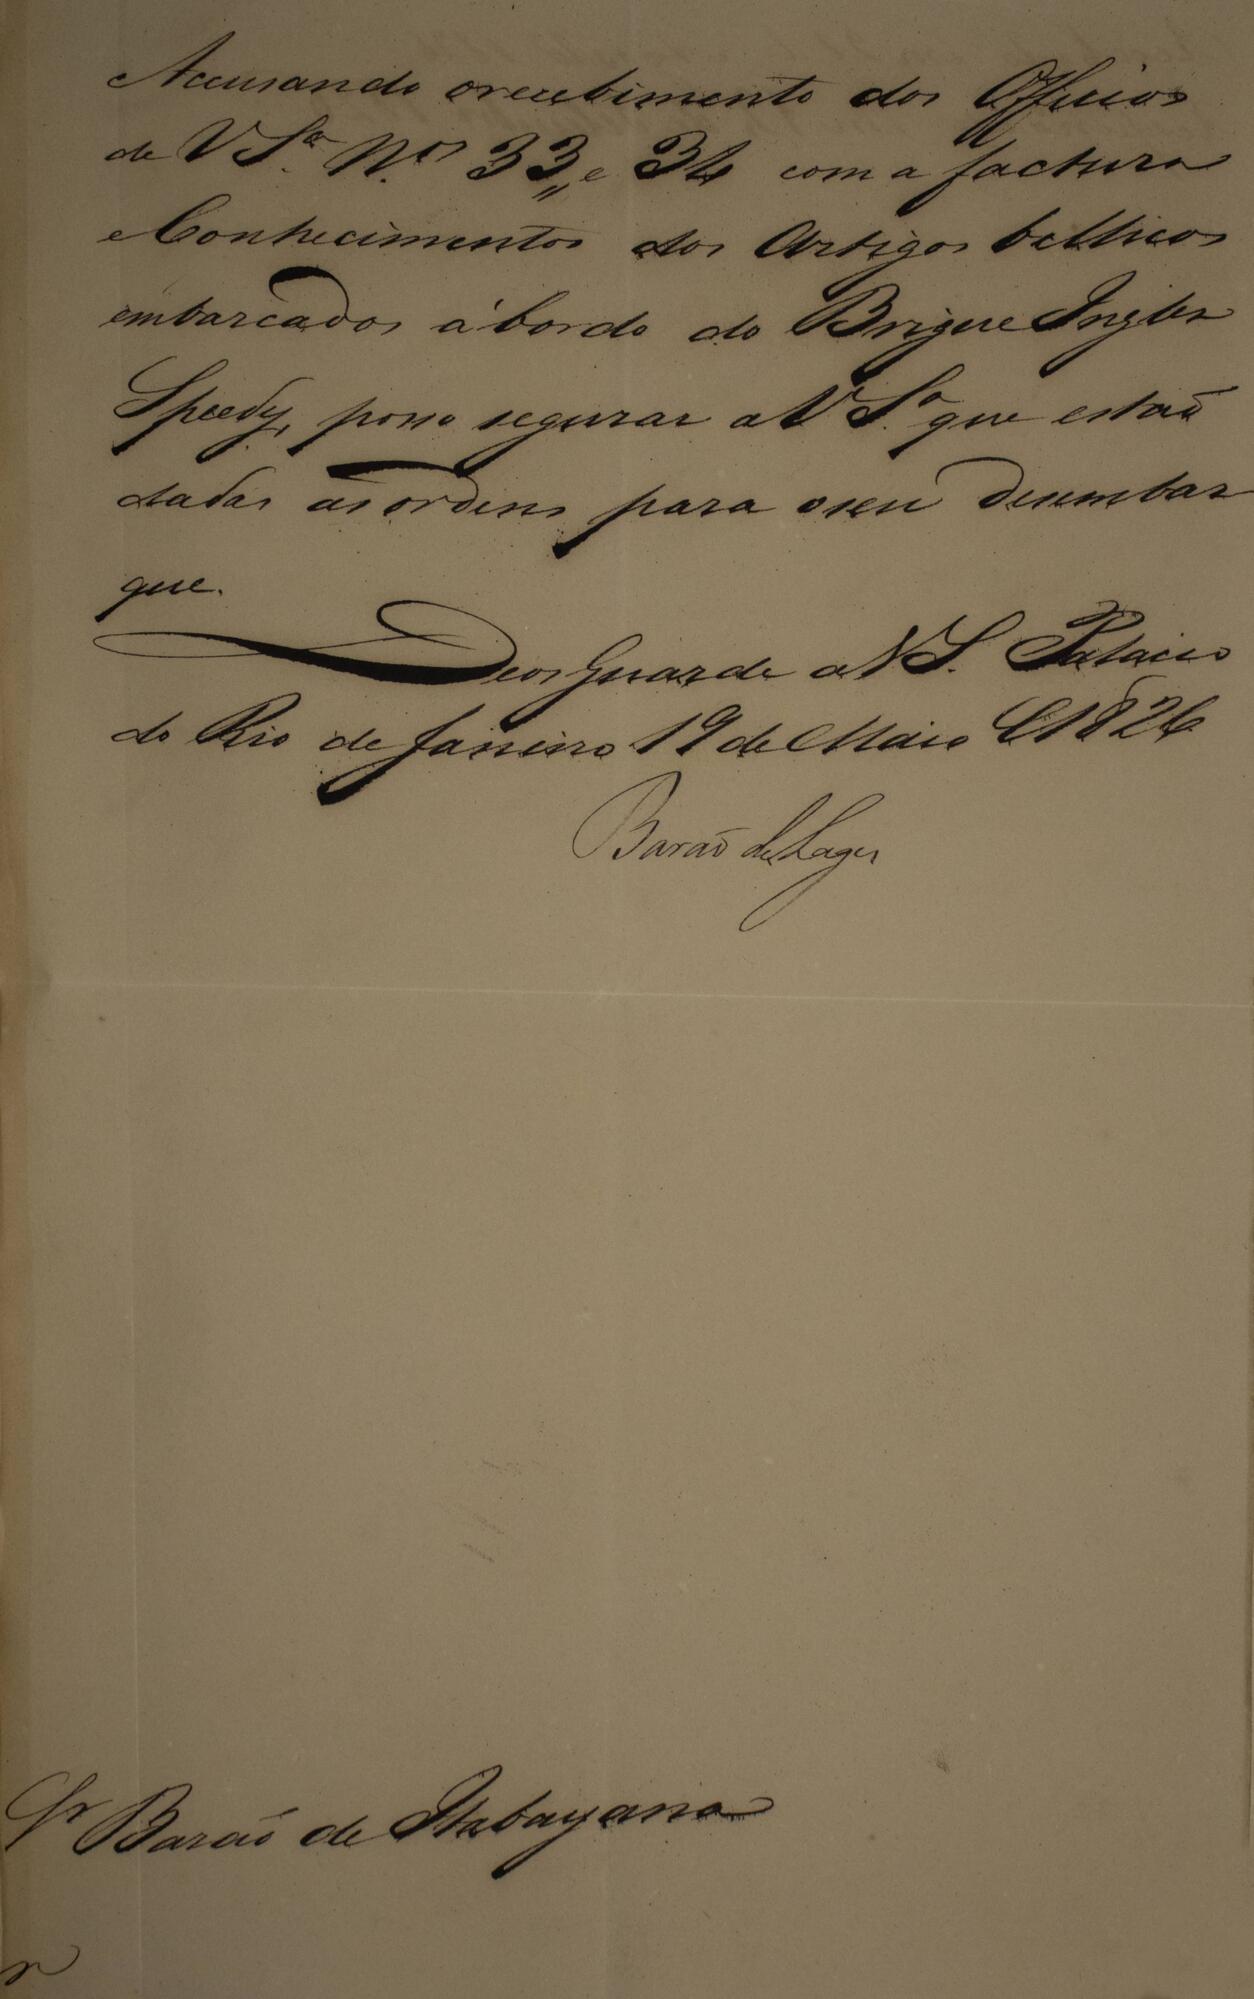 Accusando o recebimento dos Officios
de V Sª. N.os 33,, e 34 com a factura
e Conhecimentos dos Artigos bellicos
embarcados á bordo do Brigue Inglez
Speedy, posso segurar a V Sª. que estaõ
dadas as ordens para o seu desembar
que.
Deos Guarde a V S. Palacio
do Rio de Janeiro 19 de Maio 1826
Baraõ de Lages
Sr Baraõ de Itabayana